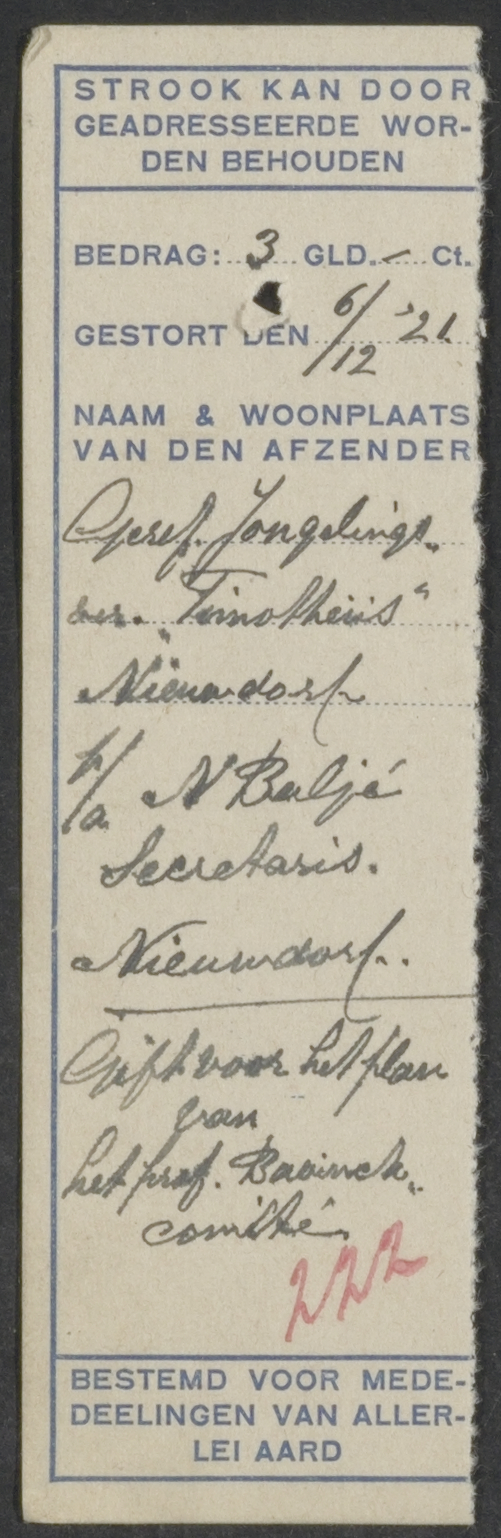 STROOK KAN DOOR
GEADRESSEERDE WOR-
DEN BEHOUDEN
BEDRAG: 3 GLD. – Ct.
GESTORT DEN 6/12 '21
NAAM & WOONPLAATS
VAN DEN AFZENDER
Geref. Jongelings-
ver. „Timotheüs"
Nieuwdorp
p/a N Baljé
Secretaris.
Nieuwdorp.
Gift voor het plan
van
het prof. Bavinck-
comité.
222
BESTEMD VOOR MEDE-
DEELINGEN VAN ALLER-
LEI AARD